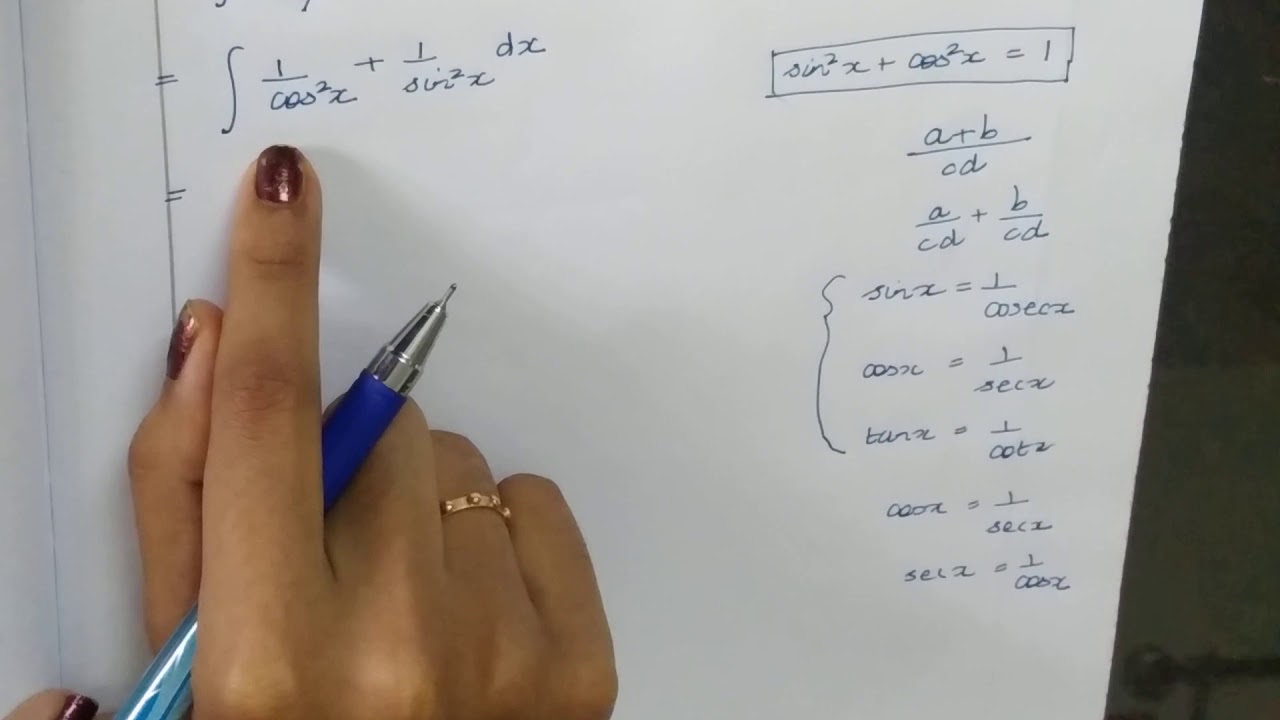 = ∫ 1/cos²x + 1/sin²x dx
=
sin²x + cos²x = 1
a+b/cd
a/cd + b/cd
sinx = 1/cosecx
cosx = 1/secx
tanx = 1/cotx
cosx = 1/secx
secx = 1/cosx